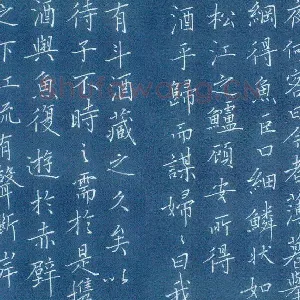 夜何客曰今者薄暮舉
網得魚巨口細鱗狀如
松江之鱸顧安所得
酒乎歸而謀婦〻曰我
有斗酒藏之久矣以
待子不時之需於是攜
酒與魚復遊於赤壁
之下江流有聲斷岸